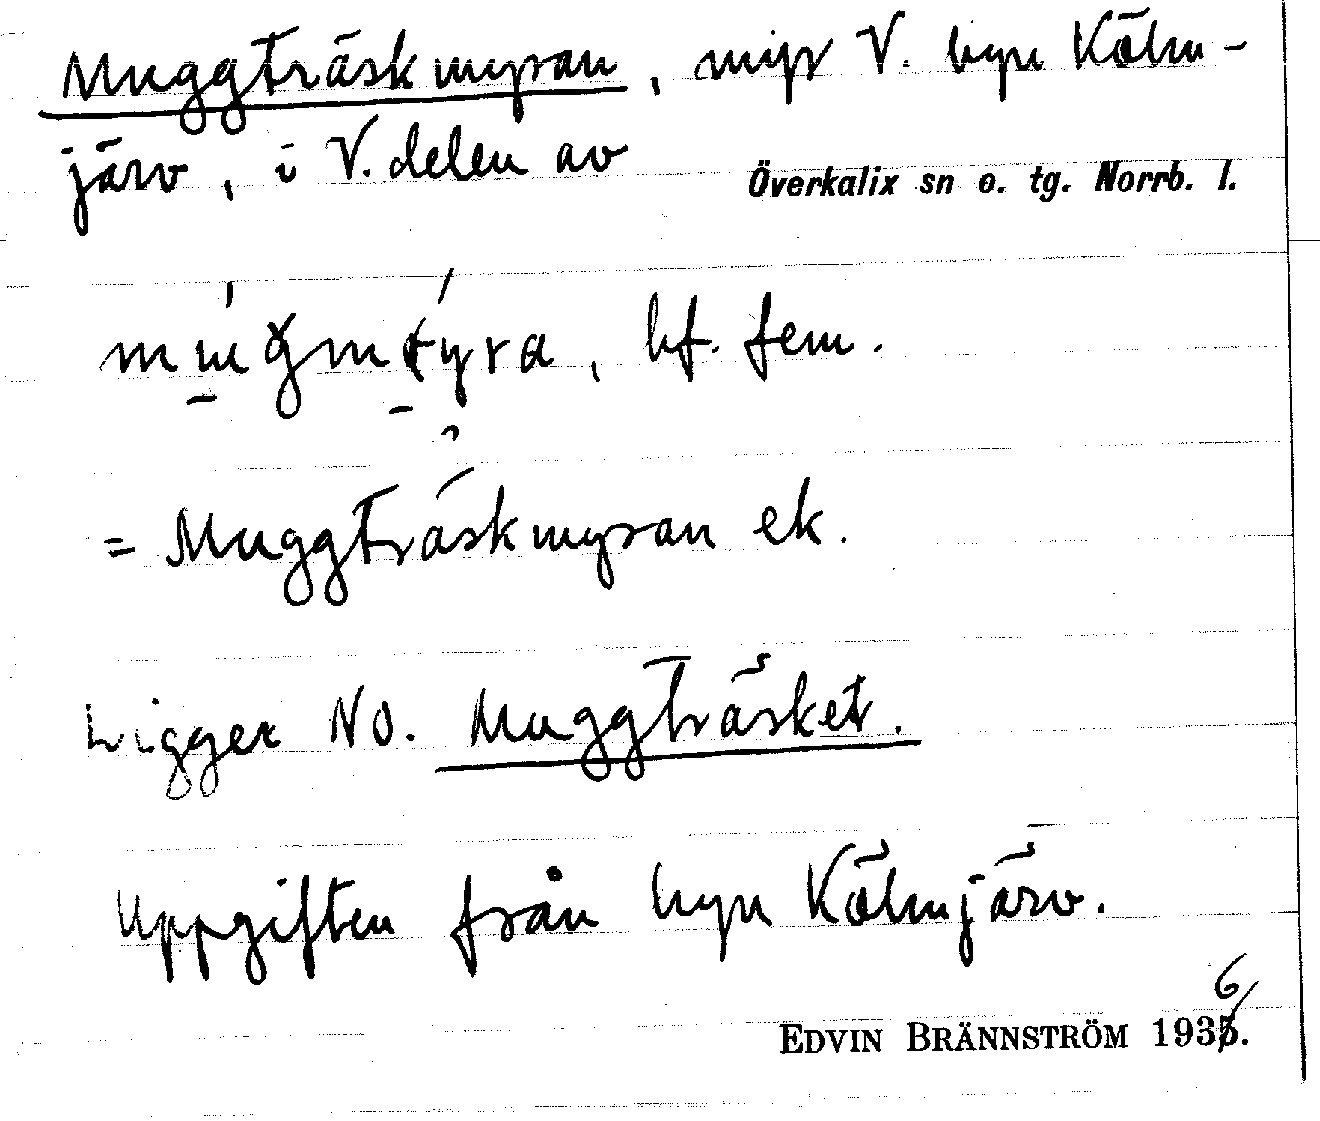 Muggträskmyran, myr V. byn Kölm-
järv, i V. delen av Överkalix sn o. tg. Norrb. l.
bf. fem.
= Muggträskmyran ek.
Ligger NO. Muggträsket.
Uppgiften från byn Kölmjärv.
EDVIN BRÄNNSTRÖM 1936.